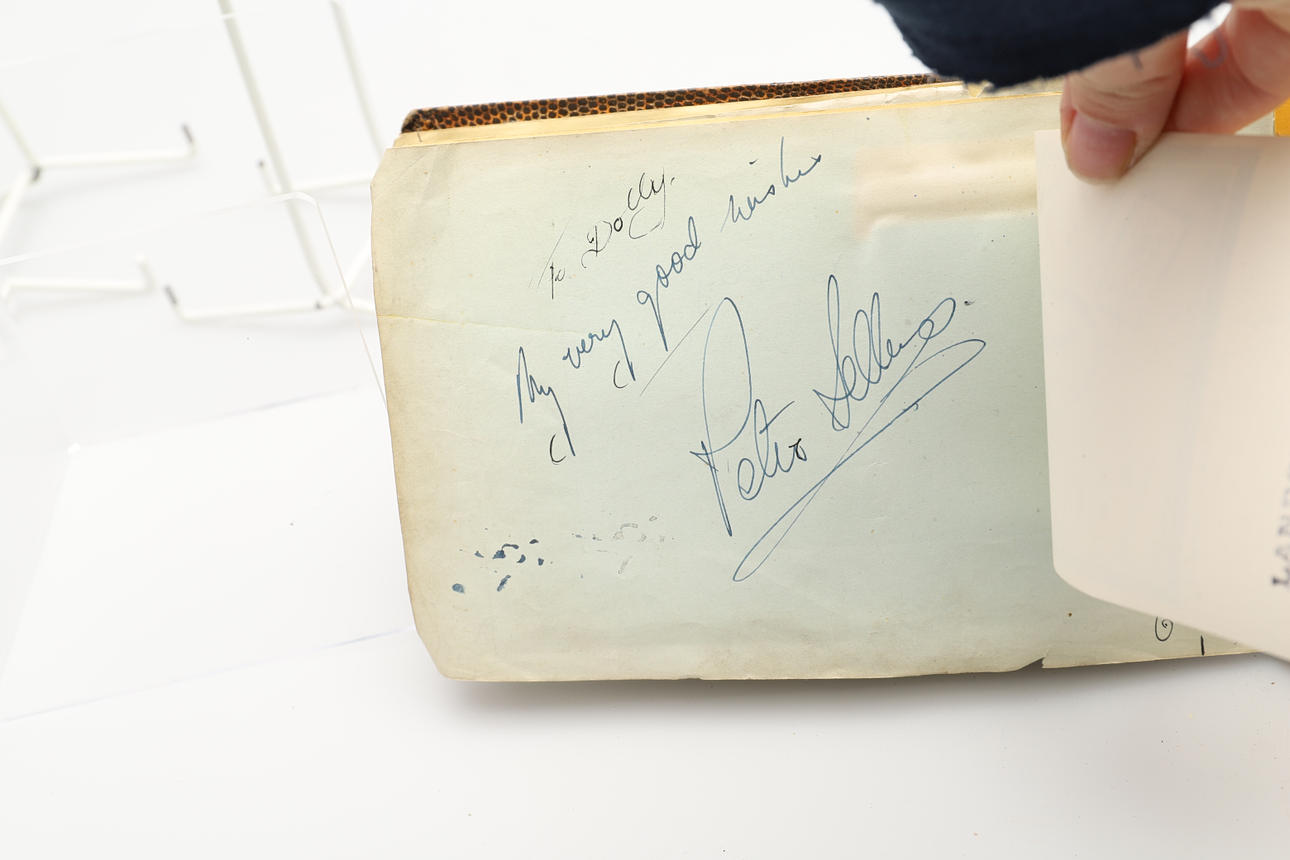 To Dolly.
My very good wishes
Peter Sellers.